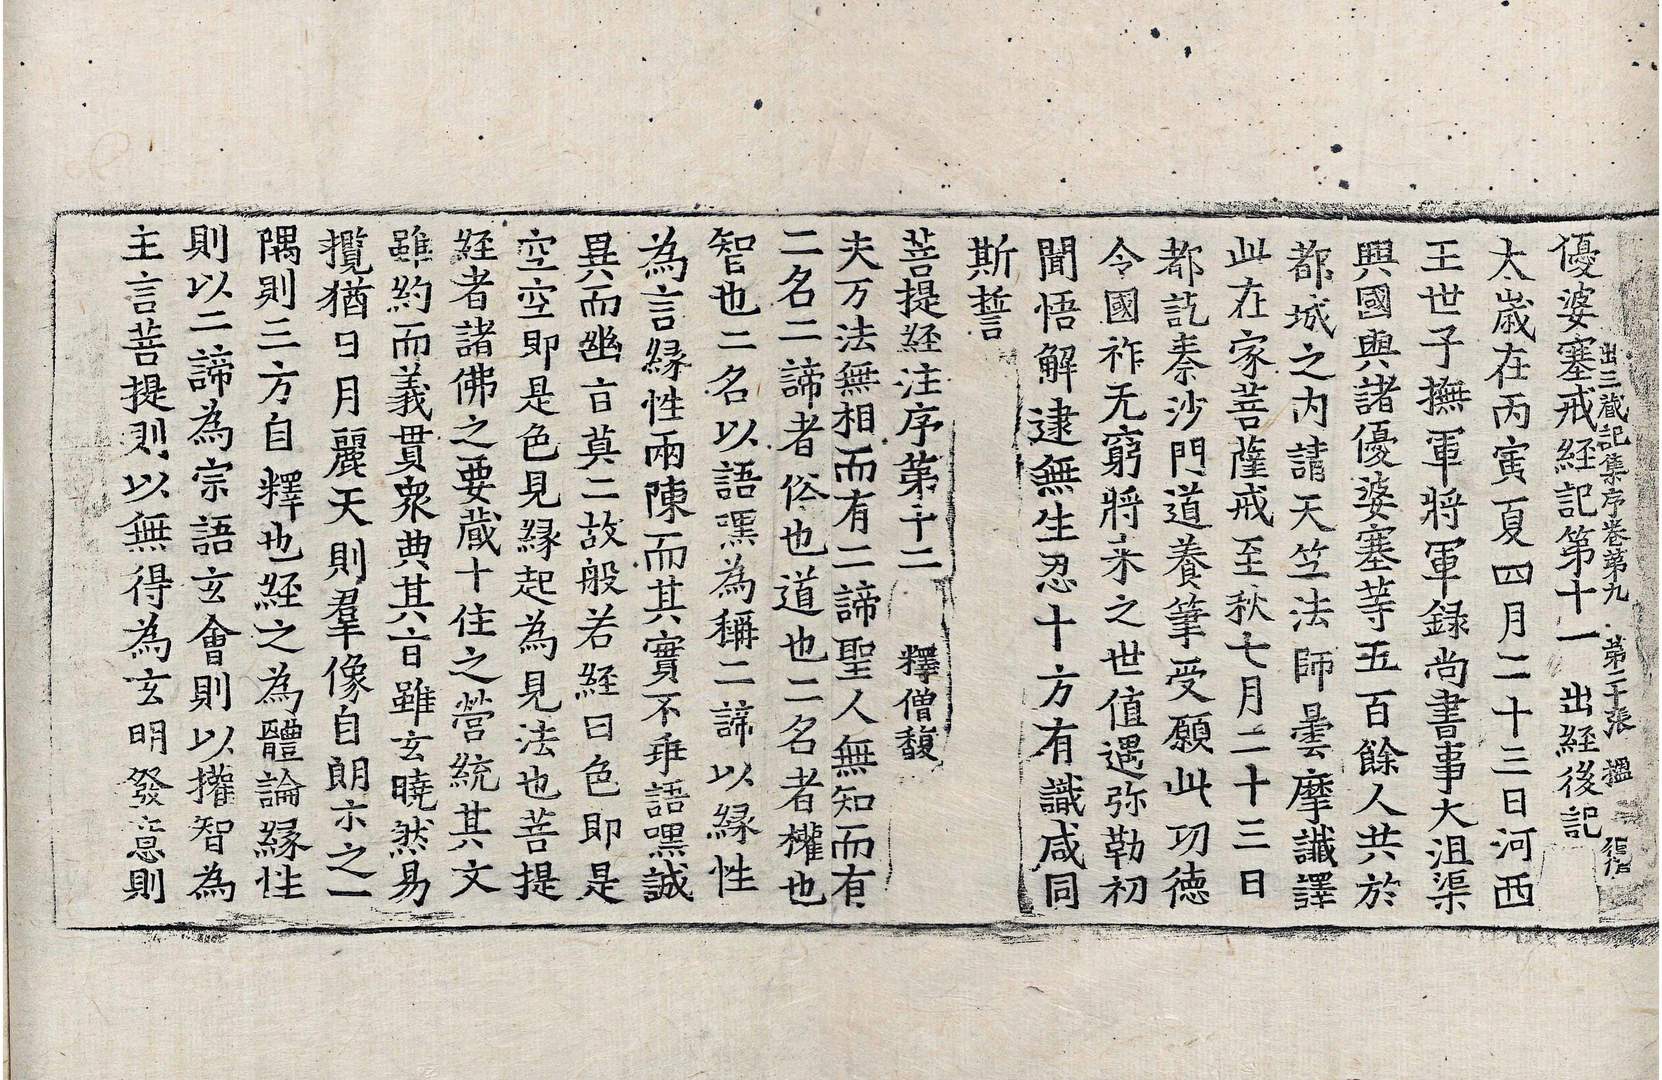 出三蔵記集序巻第九 第二十張 搵
優婆塞戒経記第十一 出経後記
太歲在丙寅夏四月二十三日河西
王世子撫軍將軍録尚書事大沮渠
興國與諸優婆塞等五百餘人共於
都城之内請天竺法師曇摩讖譯
此在家菩薩戒至秋七月二十三日
都訖秦沙門道養筆受願此功德
令國祚无窮將来之世值遇弥勒初
聞悟解逮無生忍十方有識咸同
斯誓
菩提経注序第十二 釋僧馥
夫万法無相而有二諦聖人無知而有
二名二諦者俗也道也二名者權也
智也二名以語嘿為稱二諦以縁性
為言縁性兩陳而其實不乖語嘿誠
異而幽旨莫二故般若経曰色即是
空空即是色見縁起為見法也菩提
経者諸佛之要蔵十住之營統其文
雖約而義貫衆典其旨雖玄曉然易
攬猶日月麗天則羣像自朗示之一
隅則三方自釋也経之為體論縁性
則以二諦為宗語玄會則以權智為
主言菩提則以無得為玄明發意則